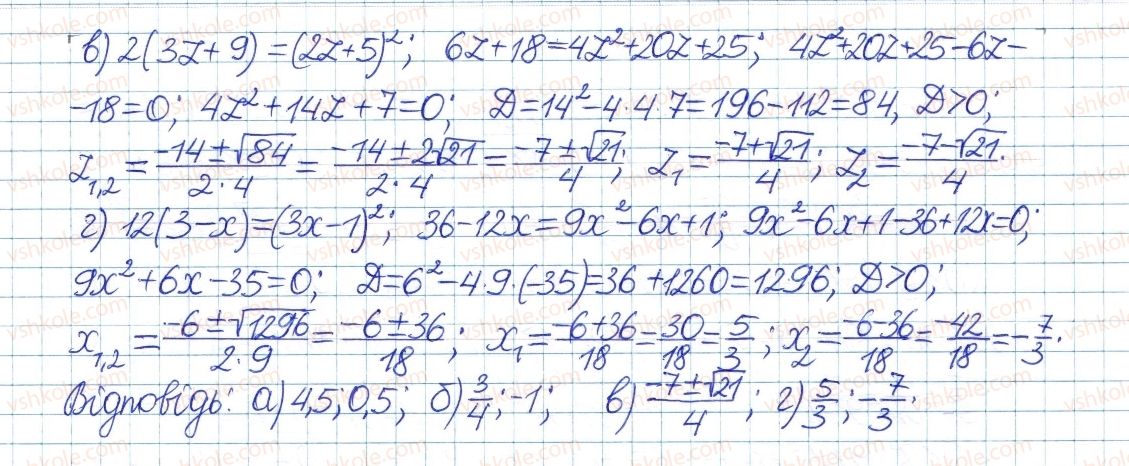 в) 2(3z+9)=(2z+5)²; 6z+18=4z²+20z+25; 4z²+20z+25-6z-
-18=0; 4z²+14z+7=0; D=14²-4·4·7=196-112=84, D>0;
z₁,₂ = (-14±√84)/(2·4) = (-14±2√21)/(2·4) = (-7±√21)/4; z₁ = (-7+√21)/4; z₂ = (-7-√21)/4.
г) 12(3-x)=(3x-1)²; 36-12x=9x²-6x+1; 9x²-6x+1-36+12x=0;
9x²+6x-35=0; D=6²-4·9·(-35)=36+1260=1296; D>0;
x₁,₂ = (-6±√1296)/(2·9) = (-6±36)/18; x₁ = (-6+36)/18 = 30/18 = 5/3; x₂ = (-6-36)/18 = -42/18 = -7/3.
Відповідь: а) 4,5; 0,5; б) 3/4; -1; в) (-7±√21)/4; г) 5/3; -7/3.
vshkole.com